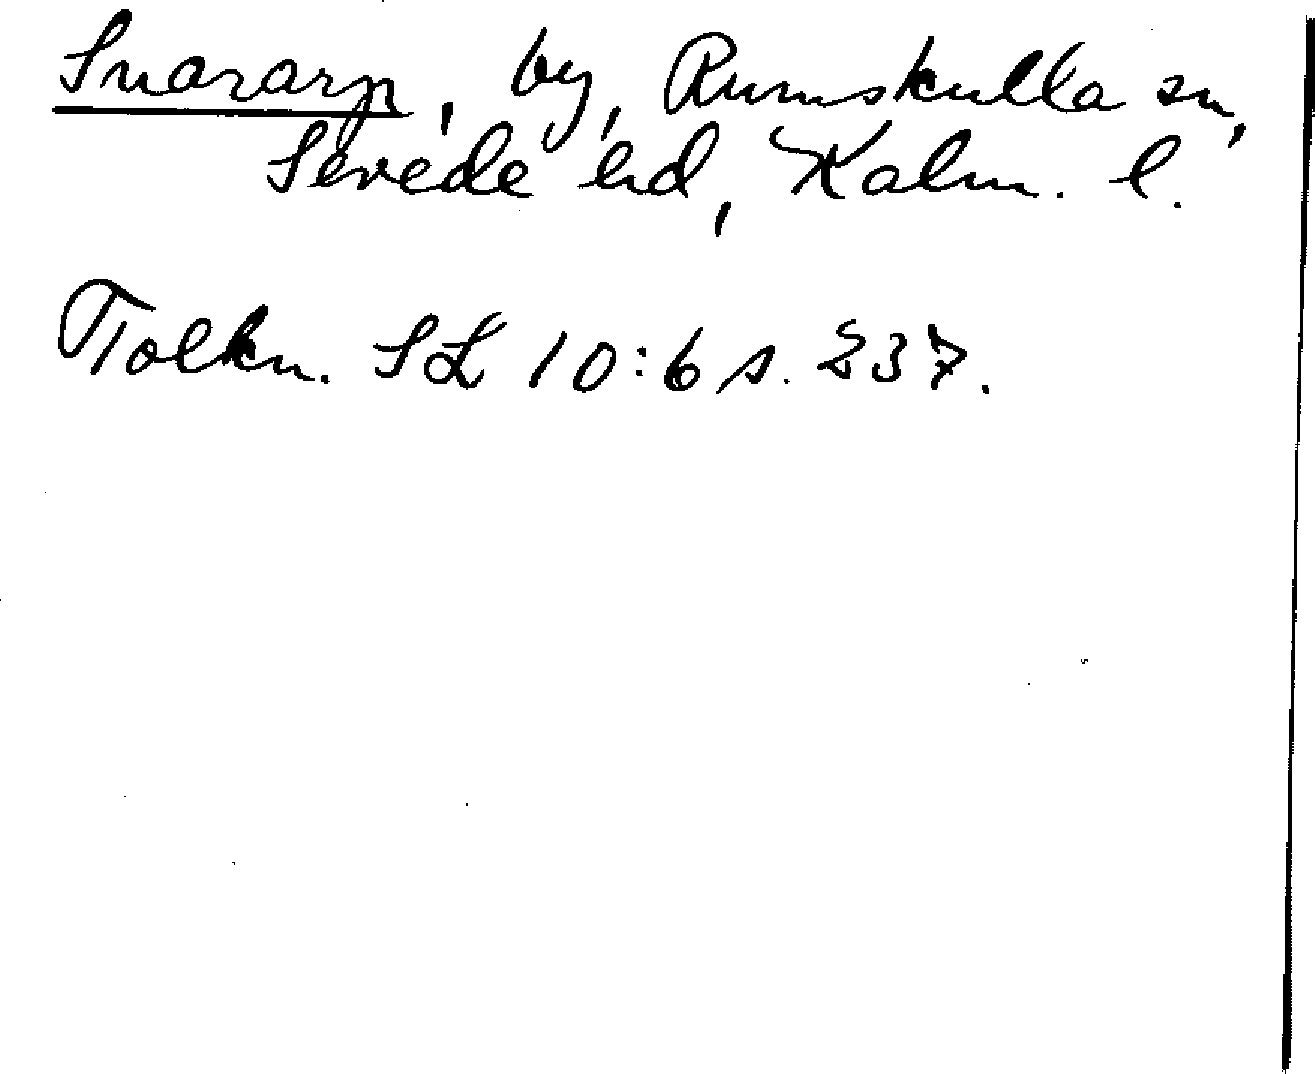 Snararp, by, Rumskulla sn,
Sevede hd, Kalm. l.
Tolkn. SL 10:6 s. 237.